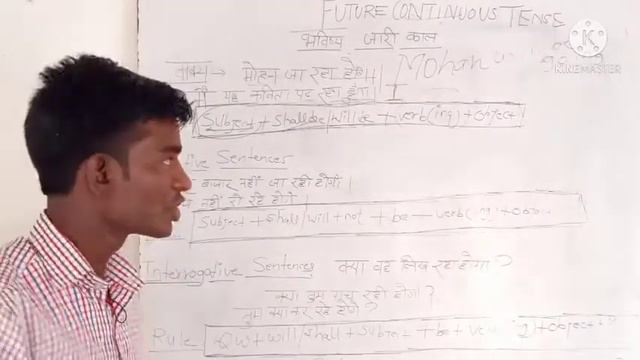 FUTURE CONTINUOUS TENSE
भविष्य जारी काल
वाक्य → मोहन जा रहा होगा। Mohan
यह कविता पढ़ रहा हूंगा।
Subject + shall be/will be + verb(ing) + object
Sentences
बाजार नहीं जा रही होगी।
नहीं रो रहे होंगे
Subject + shall/will + not + be + verb(ing) +
Interrogative Sentences क्या वह लिख रहा होगा?
क्या तुम पूछ रही होगी?
तुम क्या कर रहे होंगे?
Rule QW + will/shall + Subject + be + + object
KINEMASTER